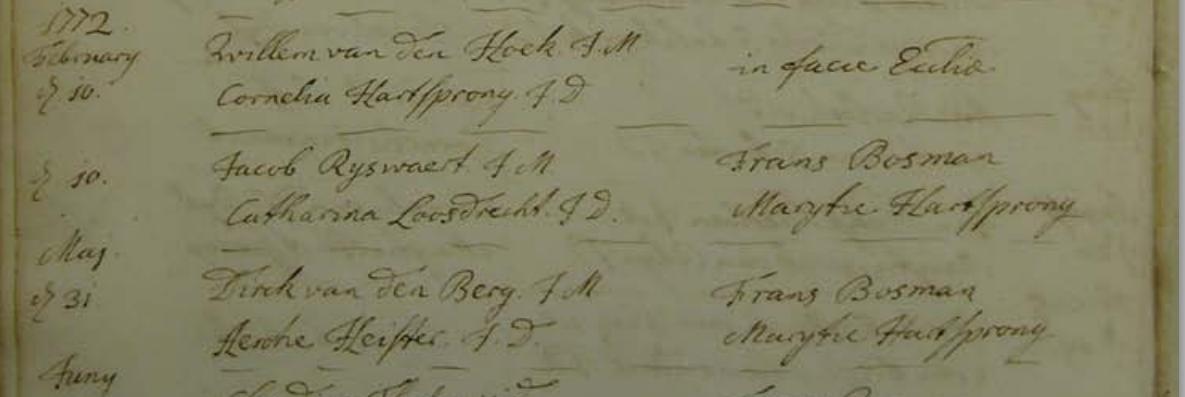 1772.
February Willem van den Hoek J.M in facie Ecclia
d 10. Cornelia Hartsprong. J.D
d 10. Jacob Ryswaert. J.M Frans Bosman
Catharina Loosdrecht. J D. Marytie Hartsprong
Maj.
d 31 Dirck van den Berg. J.M Frans Bosman
Heister. J.D. Marytie Hartsprong
Juny